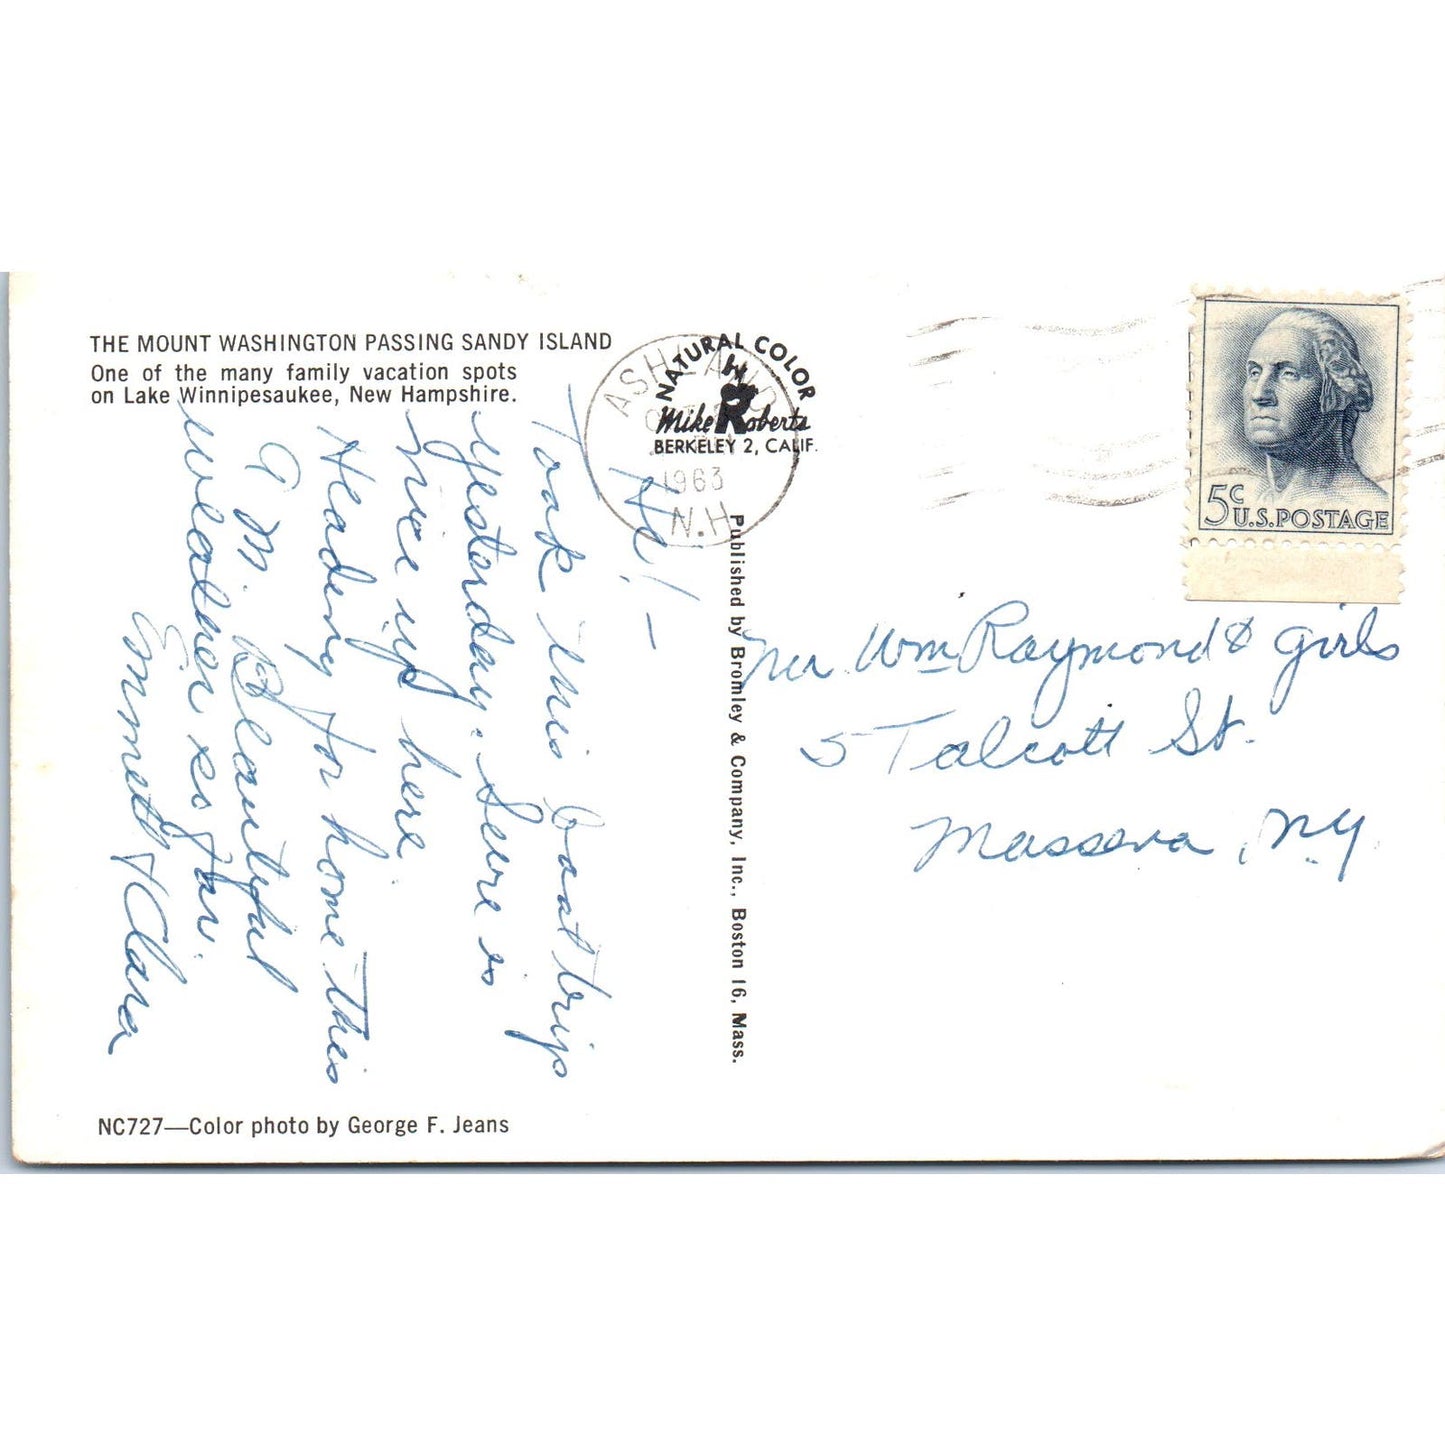 THE MOUNT WASHINGTON PASSING SANDY ISLAND
One of the many family vacation spots
on Lake Winnipesaukee, New Hampshire.
Hi! —
Took this boat trip
yesterday. Sure is
nice up here
Heading for home this
A M. Beautiful
weather so far.
Emmett & Clara
NC727—Color photo by George F. Jeans
Published by Bromley & Company, Inc., Boston 16, Mass.
NATURAL COLOR
Mike Roberts
BERKELEY 2, CALIF.
ASHLAND
1963
N.H
5c
U.S. POSTAGE
Wm Raymond & girls
5 Talcott St.
Massena, N.Y.